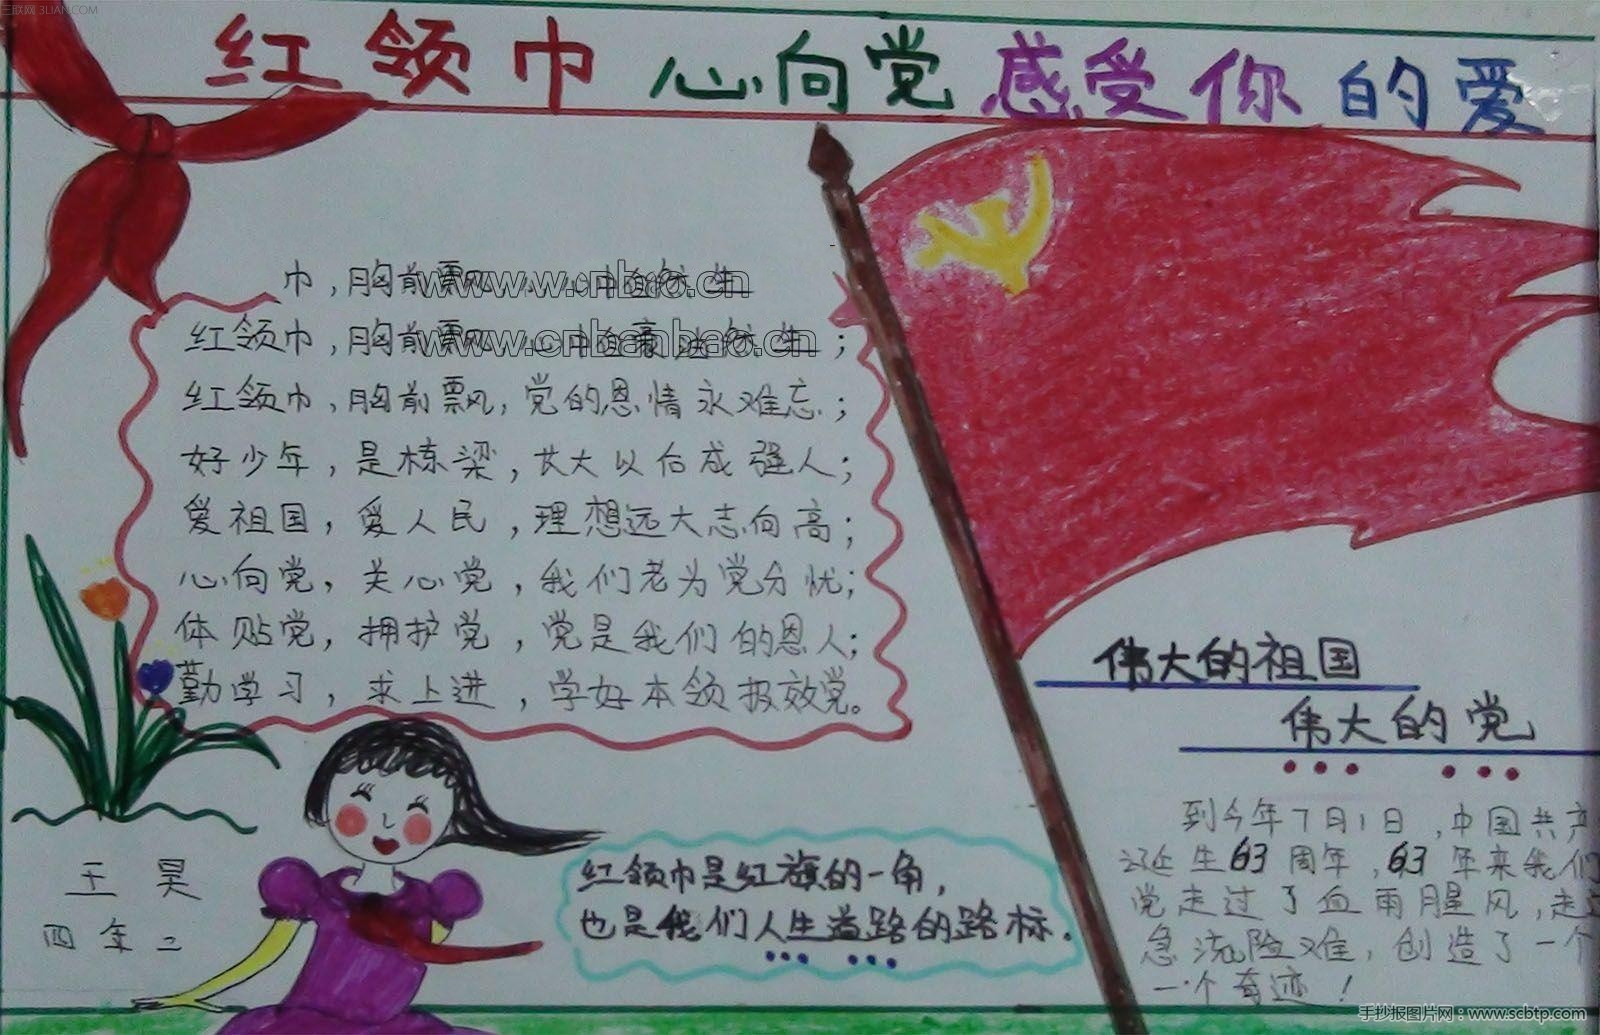 三联网 3LIAN.COM
红领巾 心向党 感受你的爱
巾,胸前飘
www.cnbanbao.cn
红领巾,胸前飘
红领巾,胸前飘,党的恩情永难忘;
好少年,是栋梁,长大以后成强人;
爱祖国,爱人民,理想远大志向高;
心向党,关心党,我们老为党分忧;
体贴党,拥护党,党是我们的恩人;
勤学习,求上进,学好本领报效党。
王昊
四年二
红领巾是红旗的一角,
也是我们人生道路的路标.
伟大的祖国
伟大的党
到今年7月1日,中国共产
诞生63周年,63年来我们
党走过了血雨腥风,走过
急流险难,创造了一个
一个奇迹!
手抄报图片网:www.scbtp.com